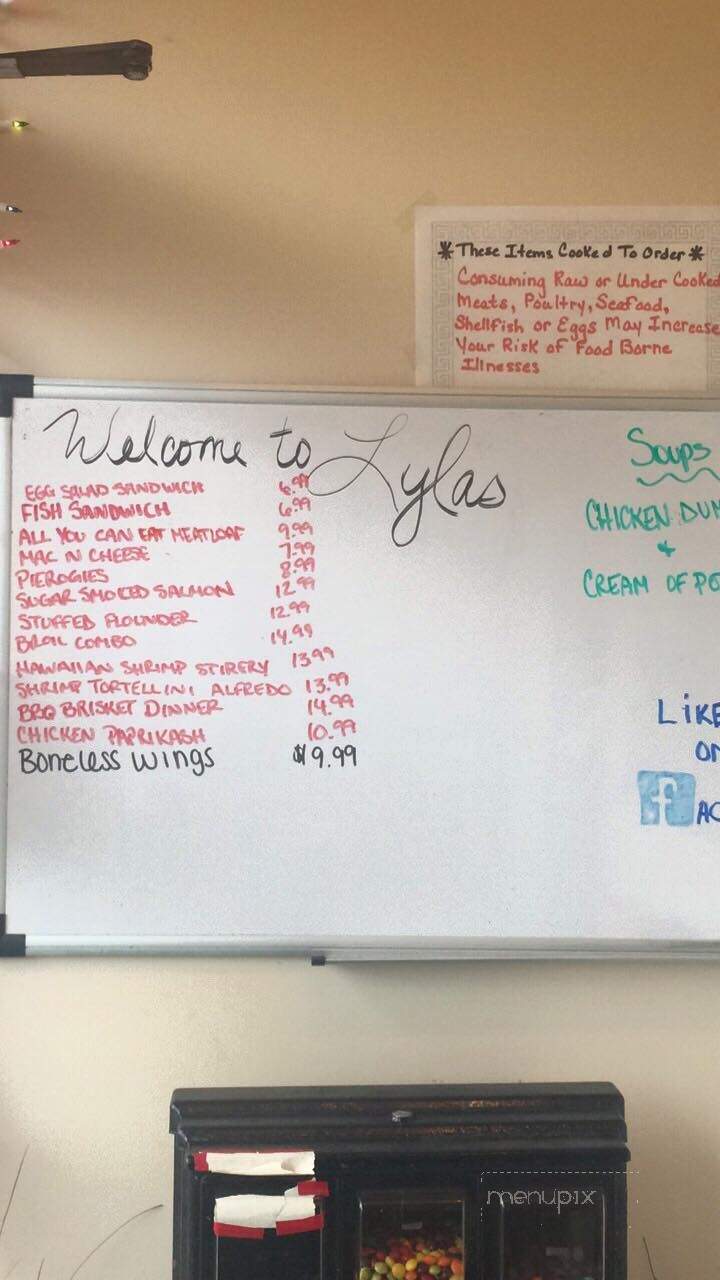 * These Items Cooked To Order *
Consuming Raw or Under Cooked
Meats, Poultry, Seafood,
Shellfish or Eggs May Increase
Your Risk of Food Borne
Illnesses
Welcome to Lylas
EGG SALAD SANDWICH 6.99
FISH SANDWICH 6.99
ALL YOU CAN EAT MEATLOAF 9.99
MAC N CHEESE 7.99
PIEROGIES 8.99
SUGAR SMOKED SALMON 12.99
STUFFED FLOUNDER 12.99
BROIL COMBO 14.99
HAWAIIAN SHRIMP STIRFRY 13.99
SHRIMP TORTELLINI ALFREDO 13.99
BBQ BRISKET DINNER 14.99
CHICKEN PAPRIKASH 10.99
Boneless Wings $9.99
Soups
CHICKEN DUM
+
CREAM OF PO
LIKE
ON
f AC
menupix